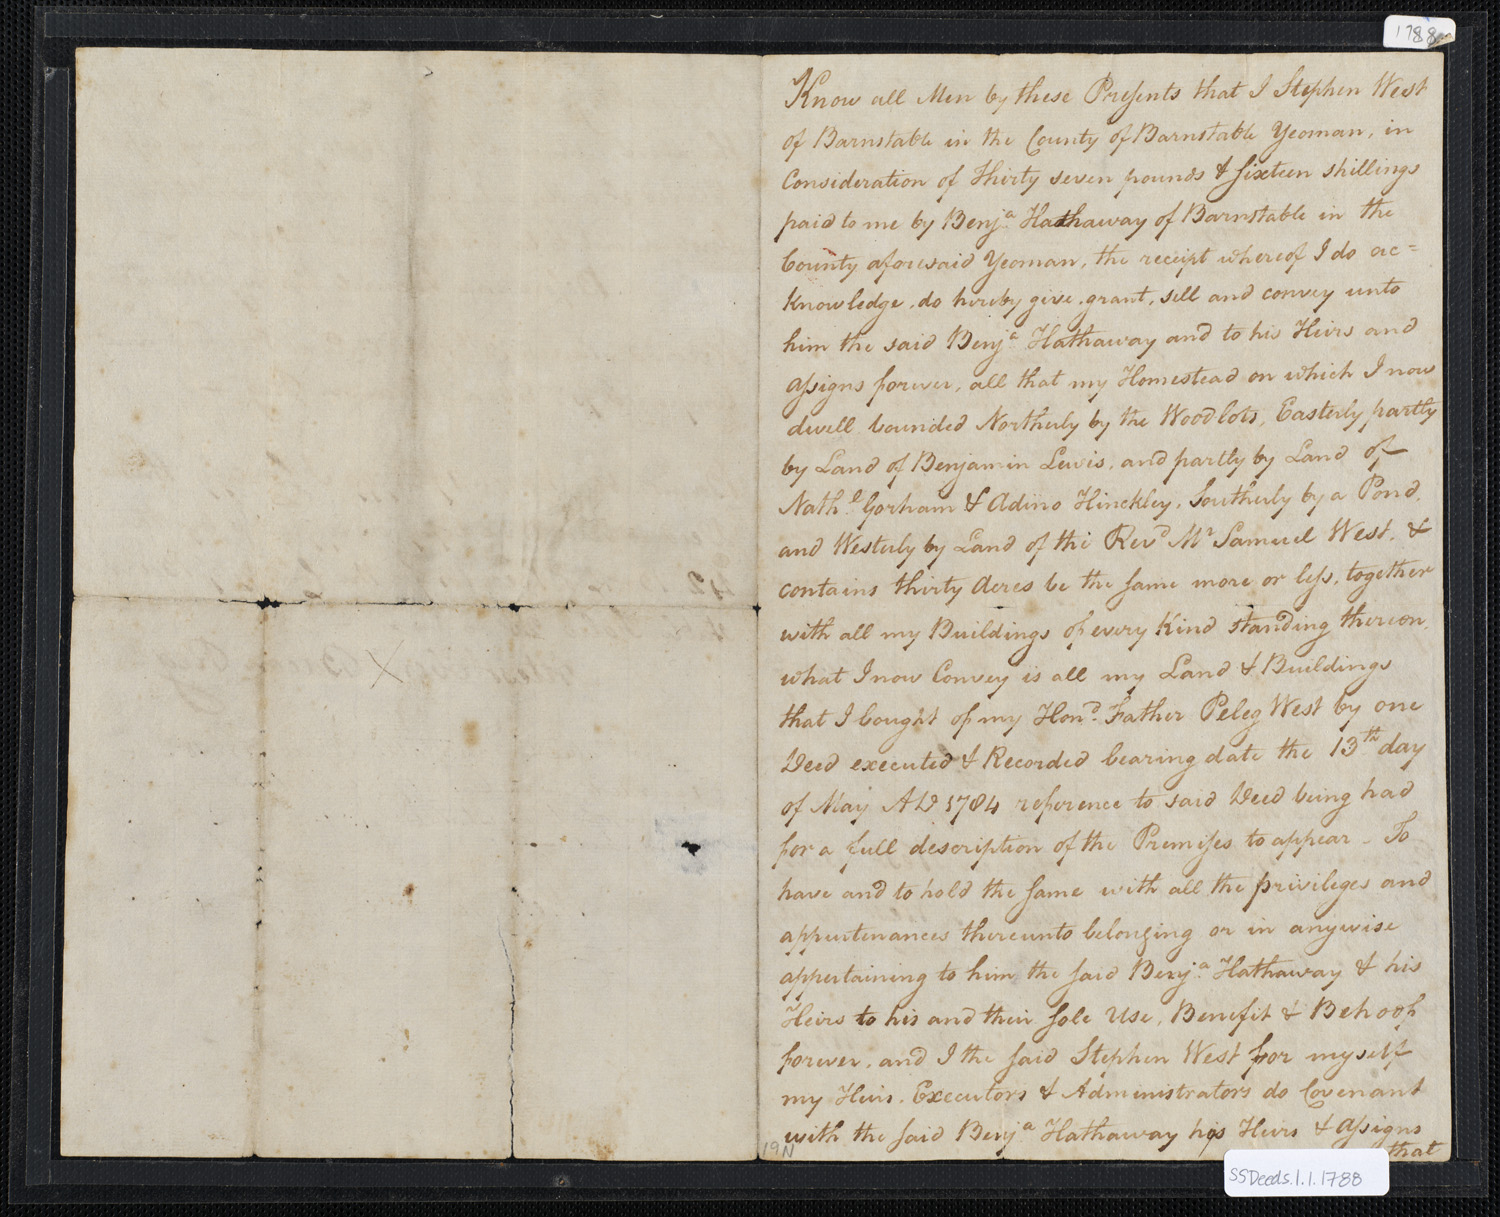 1788
Know all Men by these Preſents that I Stephen West
of Barnstable in the County of Barnstable Yeoman, in
Consideration of Thirty seven pounds & ſixteen shillings
paid to me by Benjª Hathaway of Barnstable in the
County aforesaid Yeoman, the receipt whereof I do ac=
knowledge, do hereby give, grant, sell and convey unto
him the said Benjª Hathaway and to his Heirs and
Aſsigns forever, all that my Homestead on which I now
dwell bounded Northerly by the Woodlots, Easterly partly
by Land of Benjamin Lewis, and partly by Land of
Nath.l Gorham & Adino Hinckley, Southerly by a Pond,
and Westerly by Land of the Revd Mr Samuel West, &
contains thirty Acres be the ſame more or leſs, together
with all my Buildings of every Kind standing thereon,
what I now Convey is all my Land & Buildings
that I bought of my Hond. Father Peleg West by one
Deed executed & Recorded bearing date the 13th day
of May AD 1784 reference to said Deed being had
for a full description of the Premiſes to appear - To
have and to hold the ſame with all the privileges and
appurtenances thereunto belonging or in anywise
appertaining to him the ſaid Benjª Hathaway & his
Heirs to his and their ſole Use, Benefit & Behoof
forever, and I the ſaid Stephen West for myself
my Heirs, Executors & Administrators do Covenant
with the ſaid Benjª Hathaway his Heirs & Aſsigns
that
19N
SSDeeds.1.1.1788